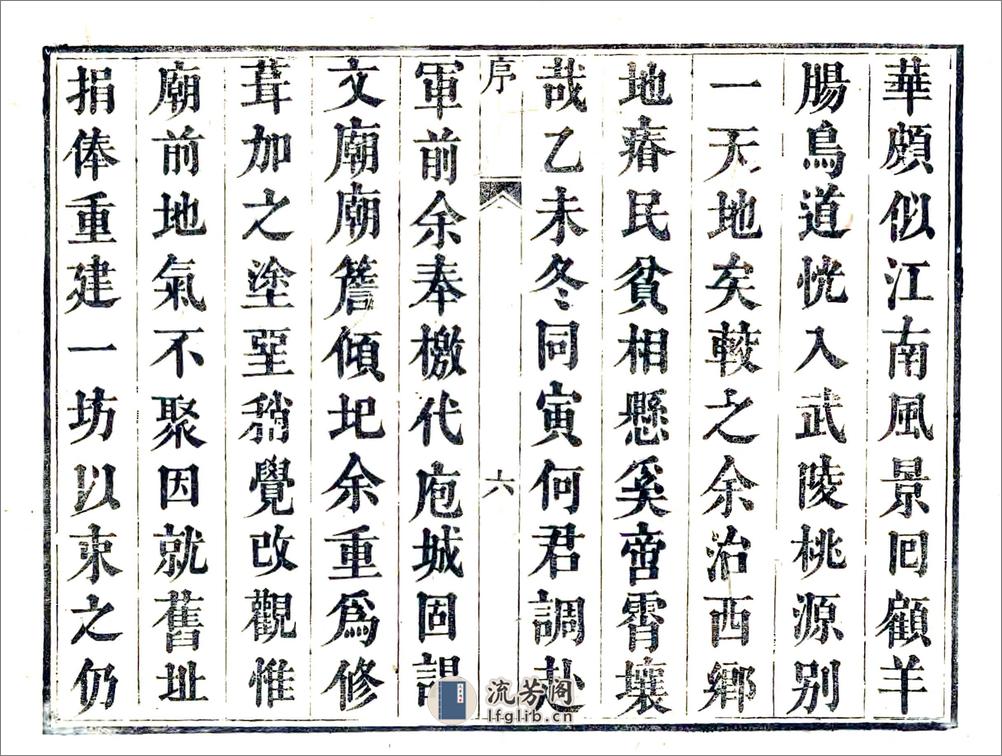 華頗似江南風景回顧羊
腸鳥道恍入武陵桃源别
一天地矣較之余治西鄉
地瘠民貧相懸奚啻霄壤
哉乙未冬同寅何君調赴
序
六
軍前余奉檄代庖城固謁
文廟廟簷傾圮余重爲修
葺加之塗堊稍覺改觀惟
廟前地氣不聚因就舊址
捐俸重建一坊以束之仍
流芳阁
lfglib.cn